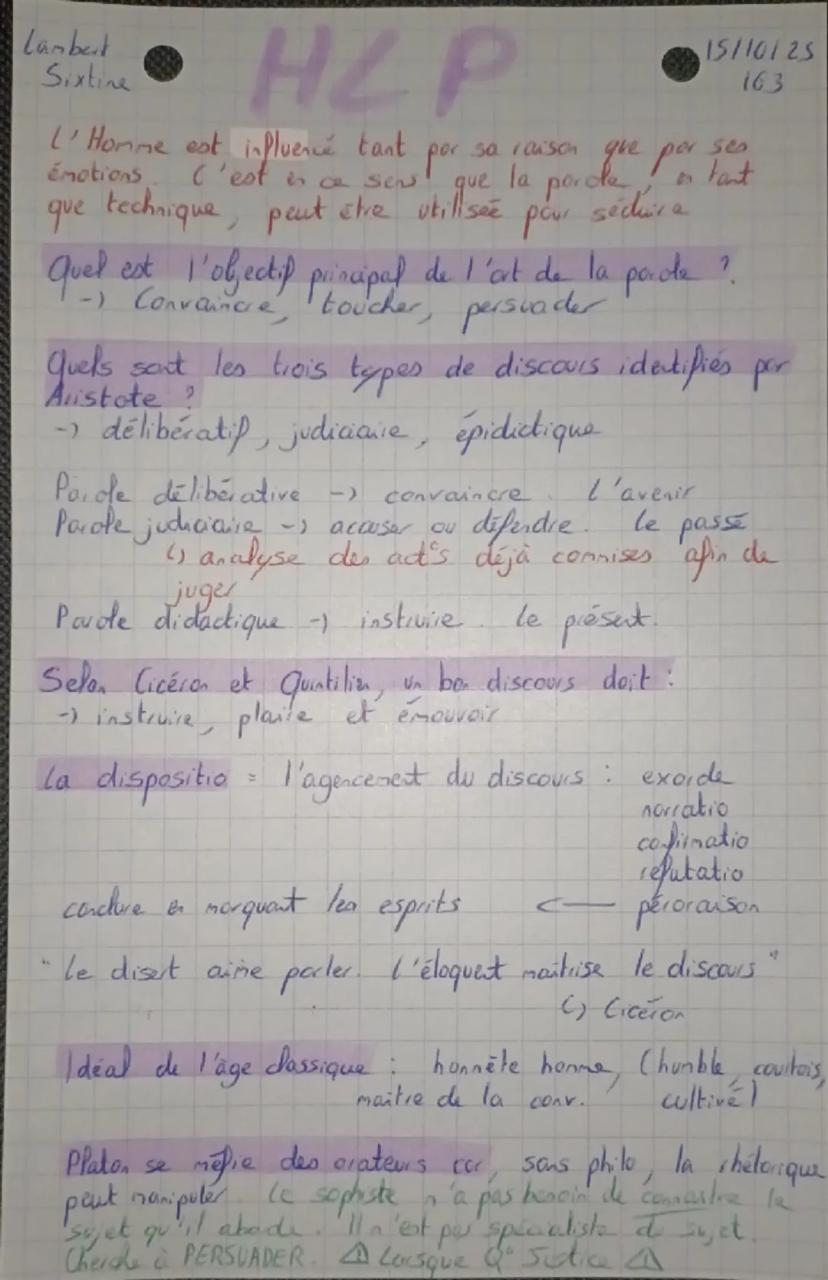 Lambert
Sixtine
HLP
15/10/25
163
L'Homme est influencé tant par sa raison que par ses
émotions. C'est en ce sens que la parole, en tant
que technique, peut être utilisée pour séduire
Quel est l'objectif principal de l'art de la parole ?
-> Convaincre, toucher, persuader
Quels sont les trois types de discours identifiés par
Aristote ?
-> délibératif, judiciaire, épidictique
Parole délibérative -> convaincre. L'avenir
Parole judiciaire -> accuser ou défendre. Le passé
↳ analyse des act°s déjà commises afin de
juger
Parole didactique -> instruire. Le présent.
Selon Cicéron et Quintilien, un bon discours doit :
-> instruire, plaire et émouvoir
La dispositio = l'agencement du discours : exorde
narratio
confirmatio
refutatio
conclure en marquant les esprits <— péroraison
"Le disert aime parler. L'éloquent maîtrise le discours"
↳ Cicéron
Idéal de l'âge classique : honnête homme, (humble, courtois,
maitre de la conv. cultivé)
Platon se méfie des orateurs car, sans philo, la rhétorique
peut manipuler. Le sophiste n'a pas besoin de connaitre le
sujet qu'il aborde. Il n'est pas spécialiste du sujet.
Cherche à PERSUADER. ⚠ Lorsque Q°